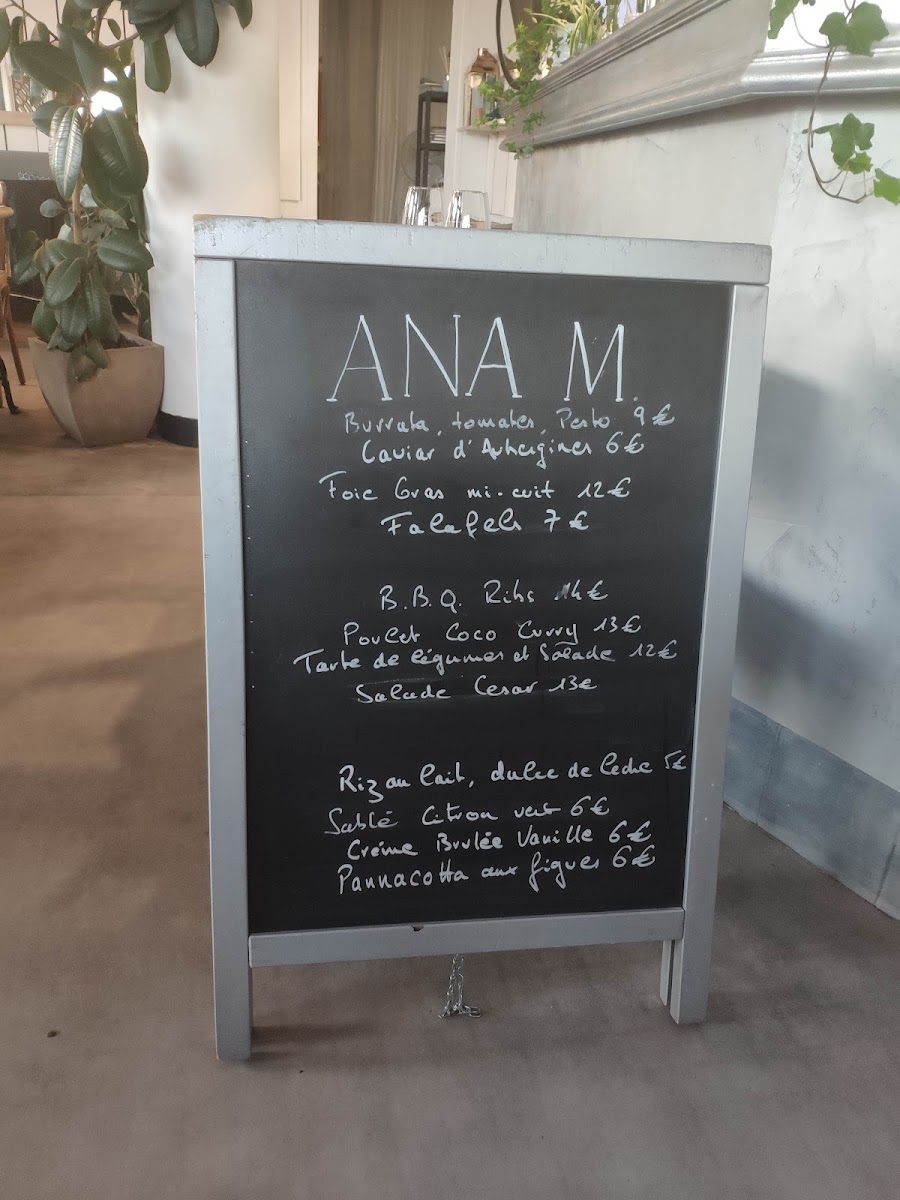 ANA M.
Burrata, tomates, Pesto 9€
Caviar d'Aubergines 6€
Foie Gras mi-cuit 12€
Falafels 7€
B.B.Q. Ribs 14€
Poulet Coco Curry 13€
Tarte de légumes et Salade 12€
Salade Cesar 13€
Riz au lait, dulce de leche 5€
Sablé Citron vert 6€
Crème Brulée Vanille 6€
Pannacotta aux figues 6€